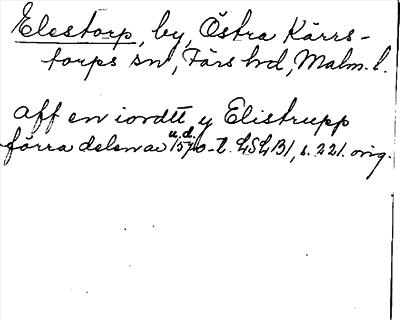 Elestorp, by, Östra Kärrs-
torps sn, Färs hd, Malm. l.
aff en iordtt y Elistrupp
u.d.
förra delen av 1570-t. LSLB1, s. 221. orig.